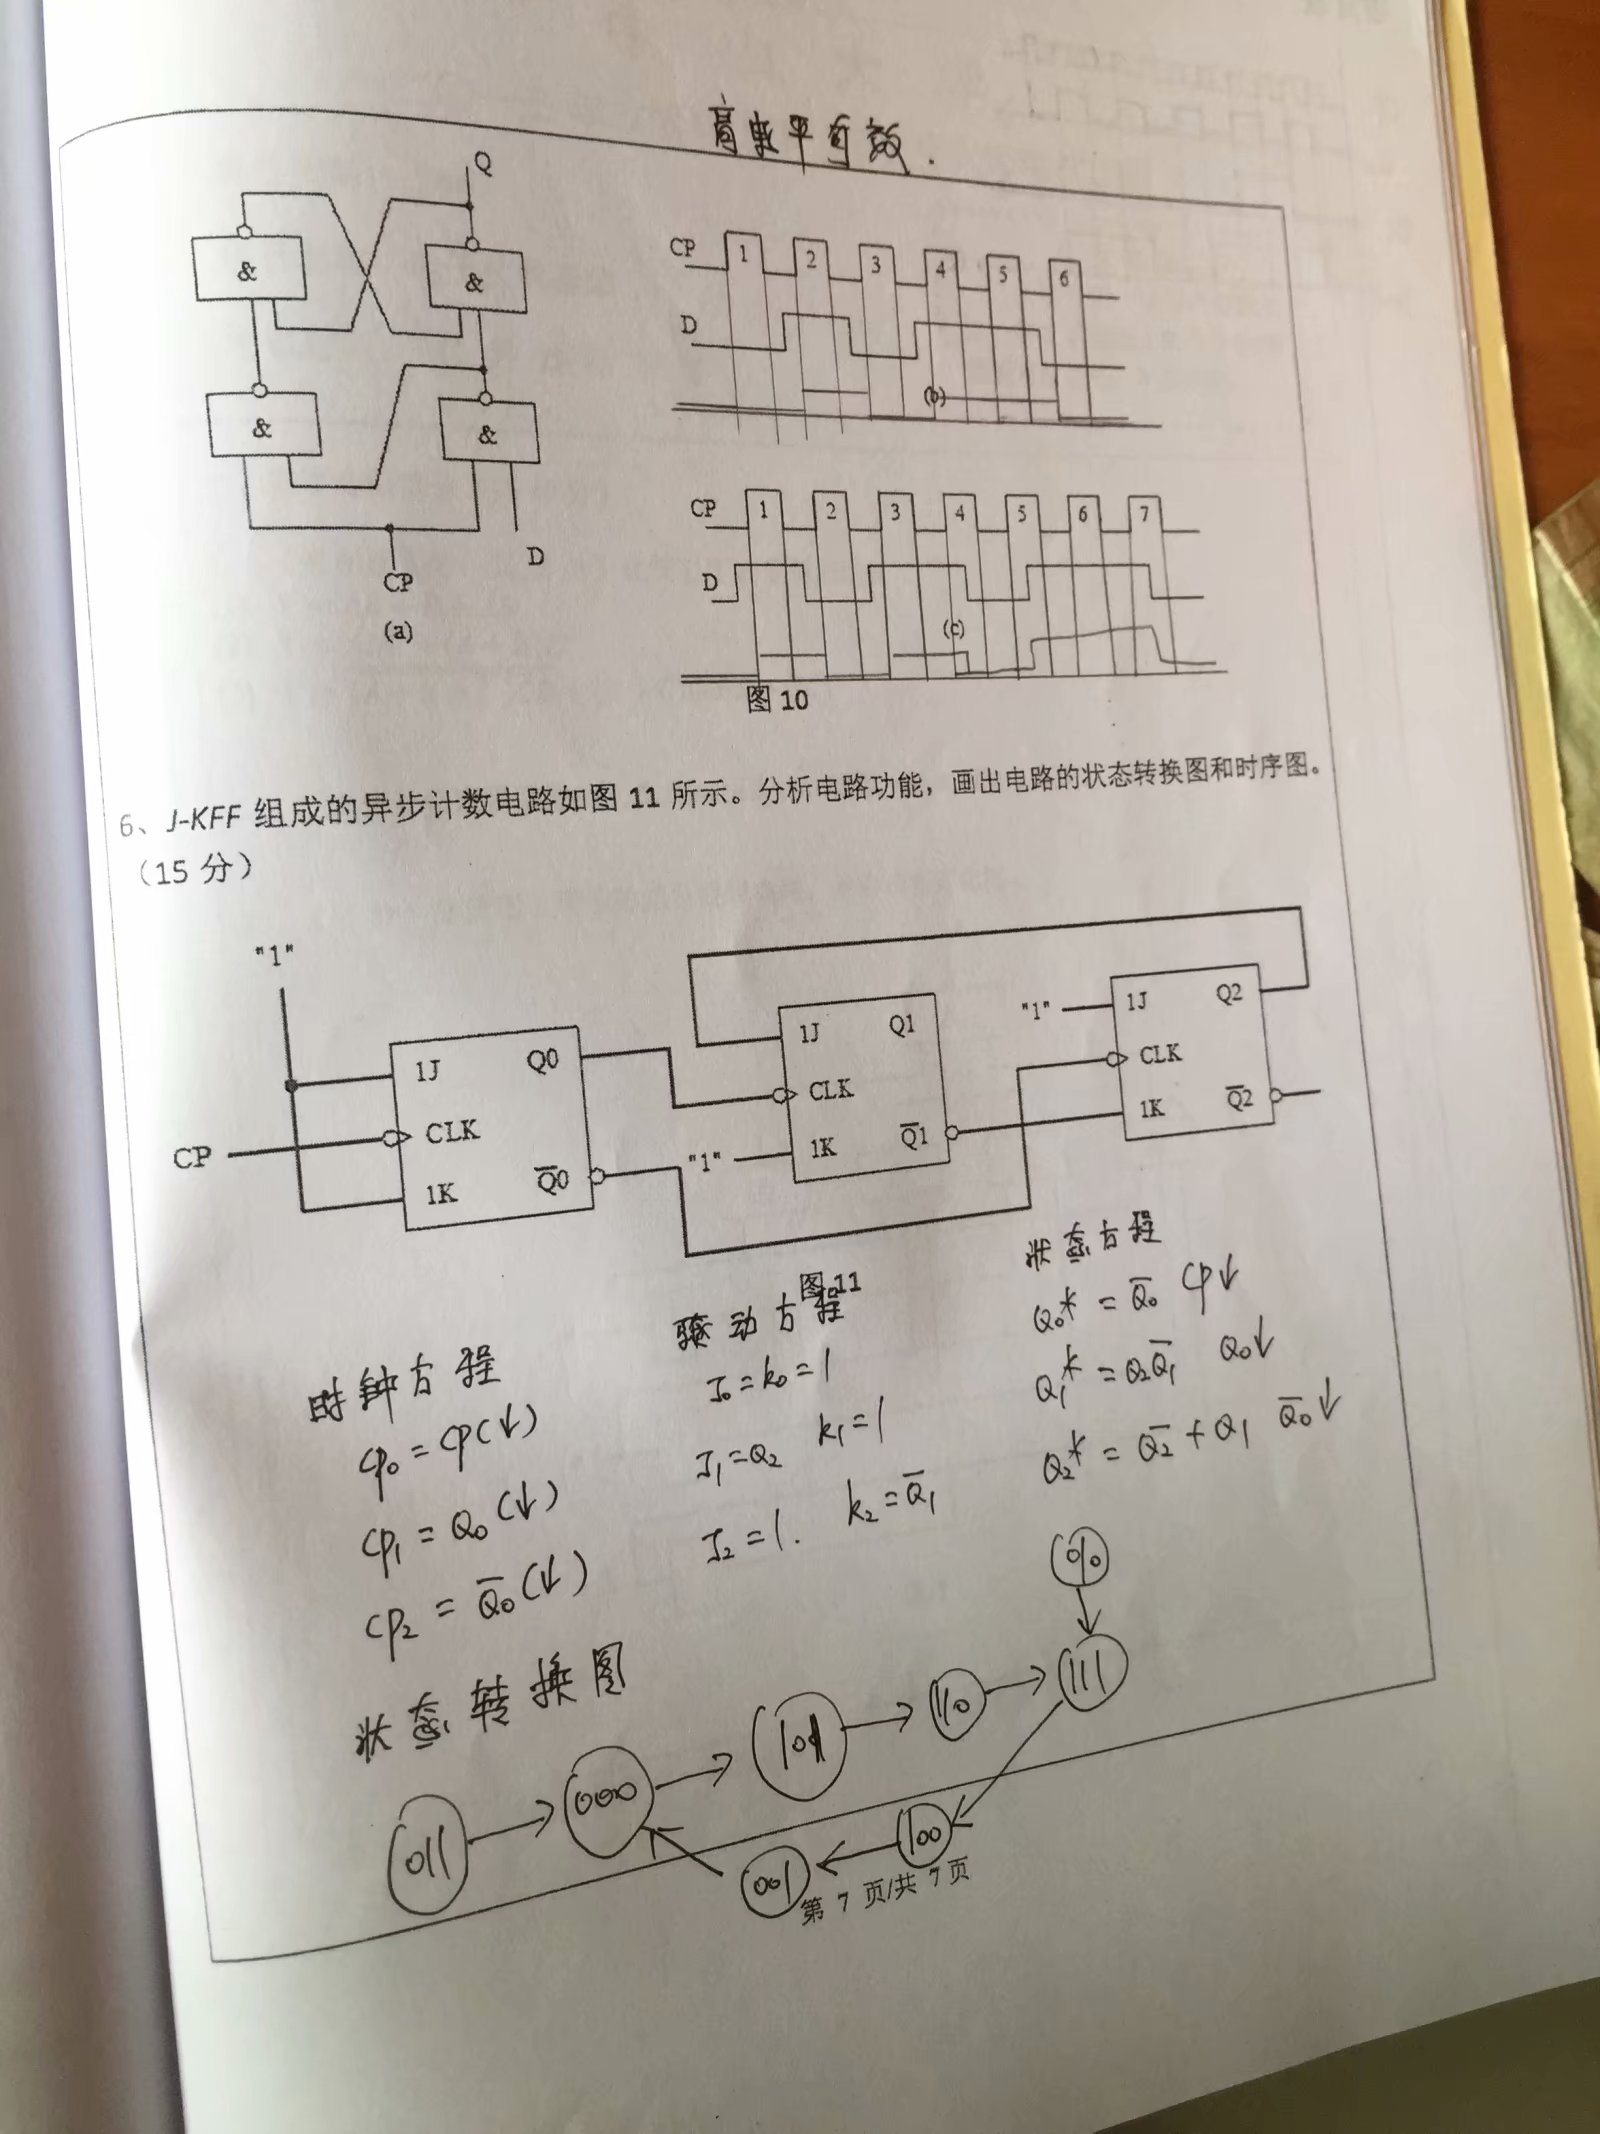 高电平有效.
Q
& &
& &
CP D
(a)
CP 1 2 3 4 5 6
D
(b)
CP 1 2 3 4 5 6 7
D
(c)
图 10
6、J-KFF 组成的异步计数电路如图 11 所示。分析电路功能，画出电路的状态转换图和时序图。
（15 分）
"1"
1J Q0
CP CLK
1K Q̅0
1J Q1
CLK
"1" 1K Q̅1
"1" 1J Q2
CLK
1K Q̅2
图 11
时钟方程
CP₀ = CP(↓)
CP₁ = Q₀(↓)
CP₂ = Q̅₀(↓)
驱动方程
J₀=k₀=1
J₁=Q₂ k₁=1
J₂=1. k₂=Q̅₁
状态方程
Q₀* = Q̅₀ CP↓
Q₁* = Q₂Q̅₁ Q₀↓
Q₂* = Q̅₂+Q₁ Q̅₀↓
状态转换图
010
011 000 101 110 111
001 100
第 7 页/共 7 页